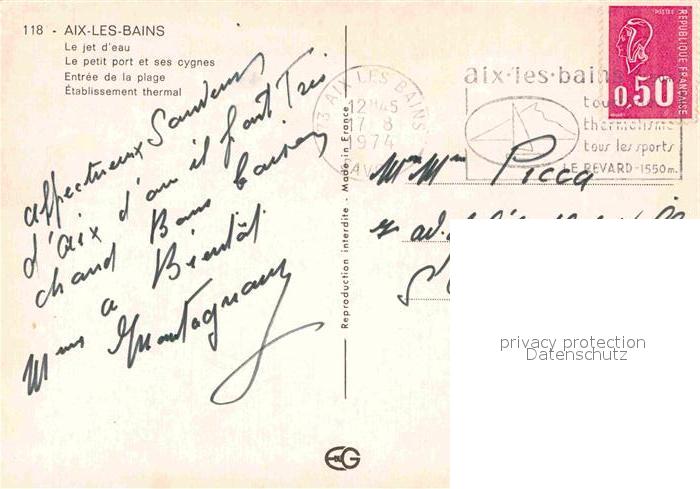 118 - AIX-LES-BAINS
Le jet d'eau
Le petit port et ses cygnes
Entrée de la plage
Établissement thermal
affectueux Souvenirs
d'Aix d'ou il fait Tres
chaud Bons Baisers
a Bientôt
Mme Montagnany
Reproduction interdite - Made in France
73 AIX LES BAINS
12H45
17 8
1974
SAVOIE
aix-les-bains
tou
thermalisme
tous les sports
LE REVARD-1550m.
POSTES
RÉPUBLIQUE FRANÇAISE
0,50
Mr Mme Picca
EG
privacy protection
Datenschutz